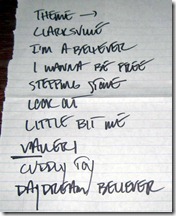 THEME →
CLARKSVILLE
I'M A BELIEVER
I WANNA BE FREE
STEPPING STONE
LOOK OUT
LITTLE BIT ME
VALERI
CUDDLY TOY
DAYDREAM BELIEVER